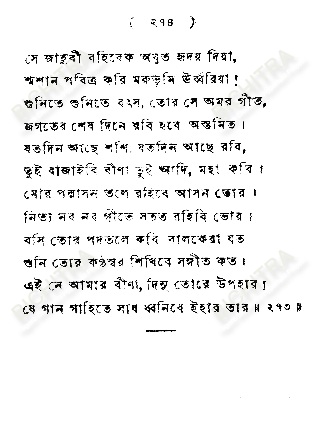 ( ২৭৪ )
সে জাহ্নবী বহিবেক অযুত হৃদয় দিয়া,
শ্মশান পবিত্র করি মরুভূমি উর্ব্বরিয়া!
শুনিতে শুনিতে বৎস, তোর সে অমর গীত,
জগতের শেষ দিনে রবি হবে অস্তমিত।
যতদিন আছে শশি, যতদিন আছে রবি,
তুই বাজাইবি বীণা তুই আদি, মহা কবি।
মোর পদ্মাসন তলে রহিবে আসন তোর।
নিত্য নব নব গীতে সতত রহিবি ভোর।
বসি তোর পদতলে কবি বালকেরা যত
শুনি তোর কণ্ঠস্বর শিখিবে সঙ্গীত কত।
এই নে আমার বীণা, দিনু তোরে উপহার।
যে গান গাহিতে সাধ ধ্বনিবে ইহার তার॥ ২৭৩॥